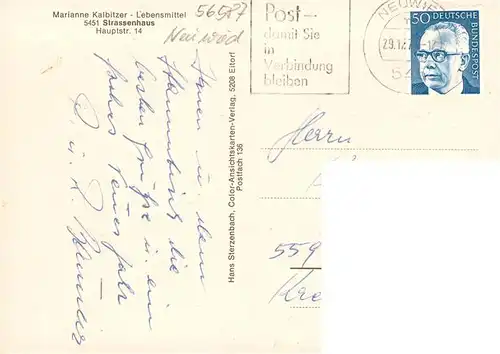 Marianne Kalbitzer - Lebensmittel
5451 Strassenhaus
Hauptstr. 14
56587
Neuwied
Post –
damit Sie
in
Verbindung
bleiben
NEUWIE
29.12.7
50 DEUTSCHE BUNDESPOST
Ihnen u. dem
Stammtisch die
besten Grüße u. ein
frohes neues Jahr
Hans Sterzenbach, Color-Ansichtskarten-Verlag, 5208 Eitorf
Postfach 136
Herrn
559
Kre